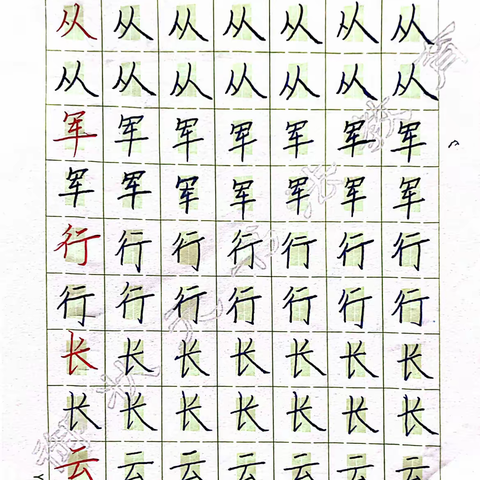 从从从从从从从
从从从从从从从
军军军军军军军
军军军军军军军
行行行行行行行
行行行行行行行
长长长长长长长
长长长长长长长
云云云云云云云